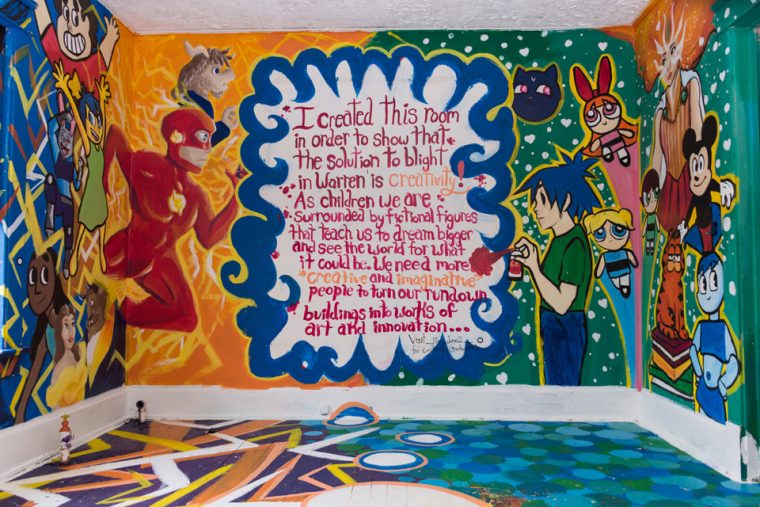 I created this room
in order to show that
the solution to blight
in Warren is creativity!
As children we are
surrounded by fictional figures
that teach us to dream bigger
and see the world for what
it could be. We need more
"creative and imaginative"
people to turn our rundown
buildings into works of
art and innovation...